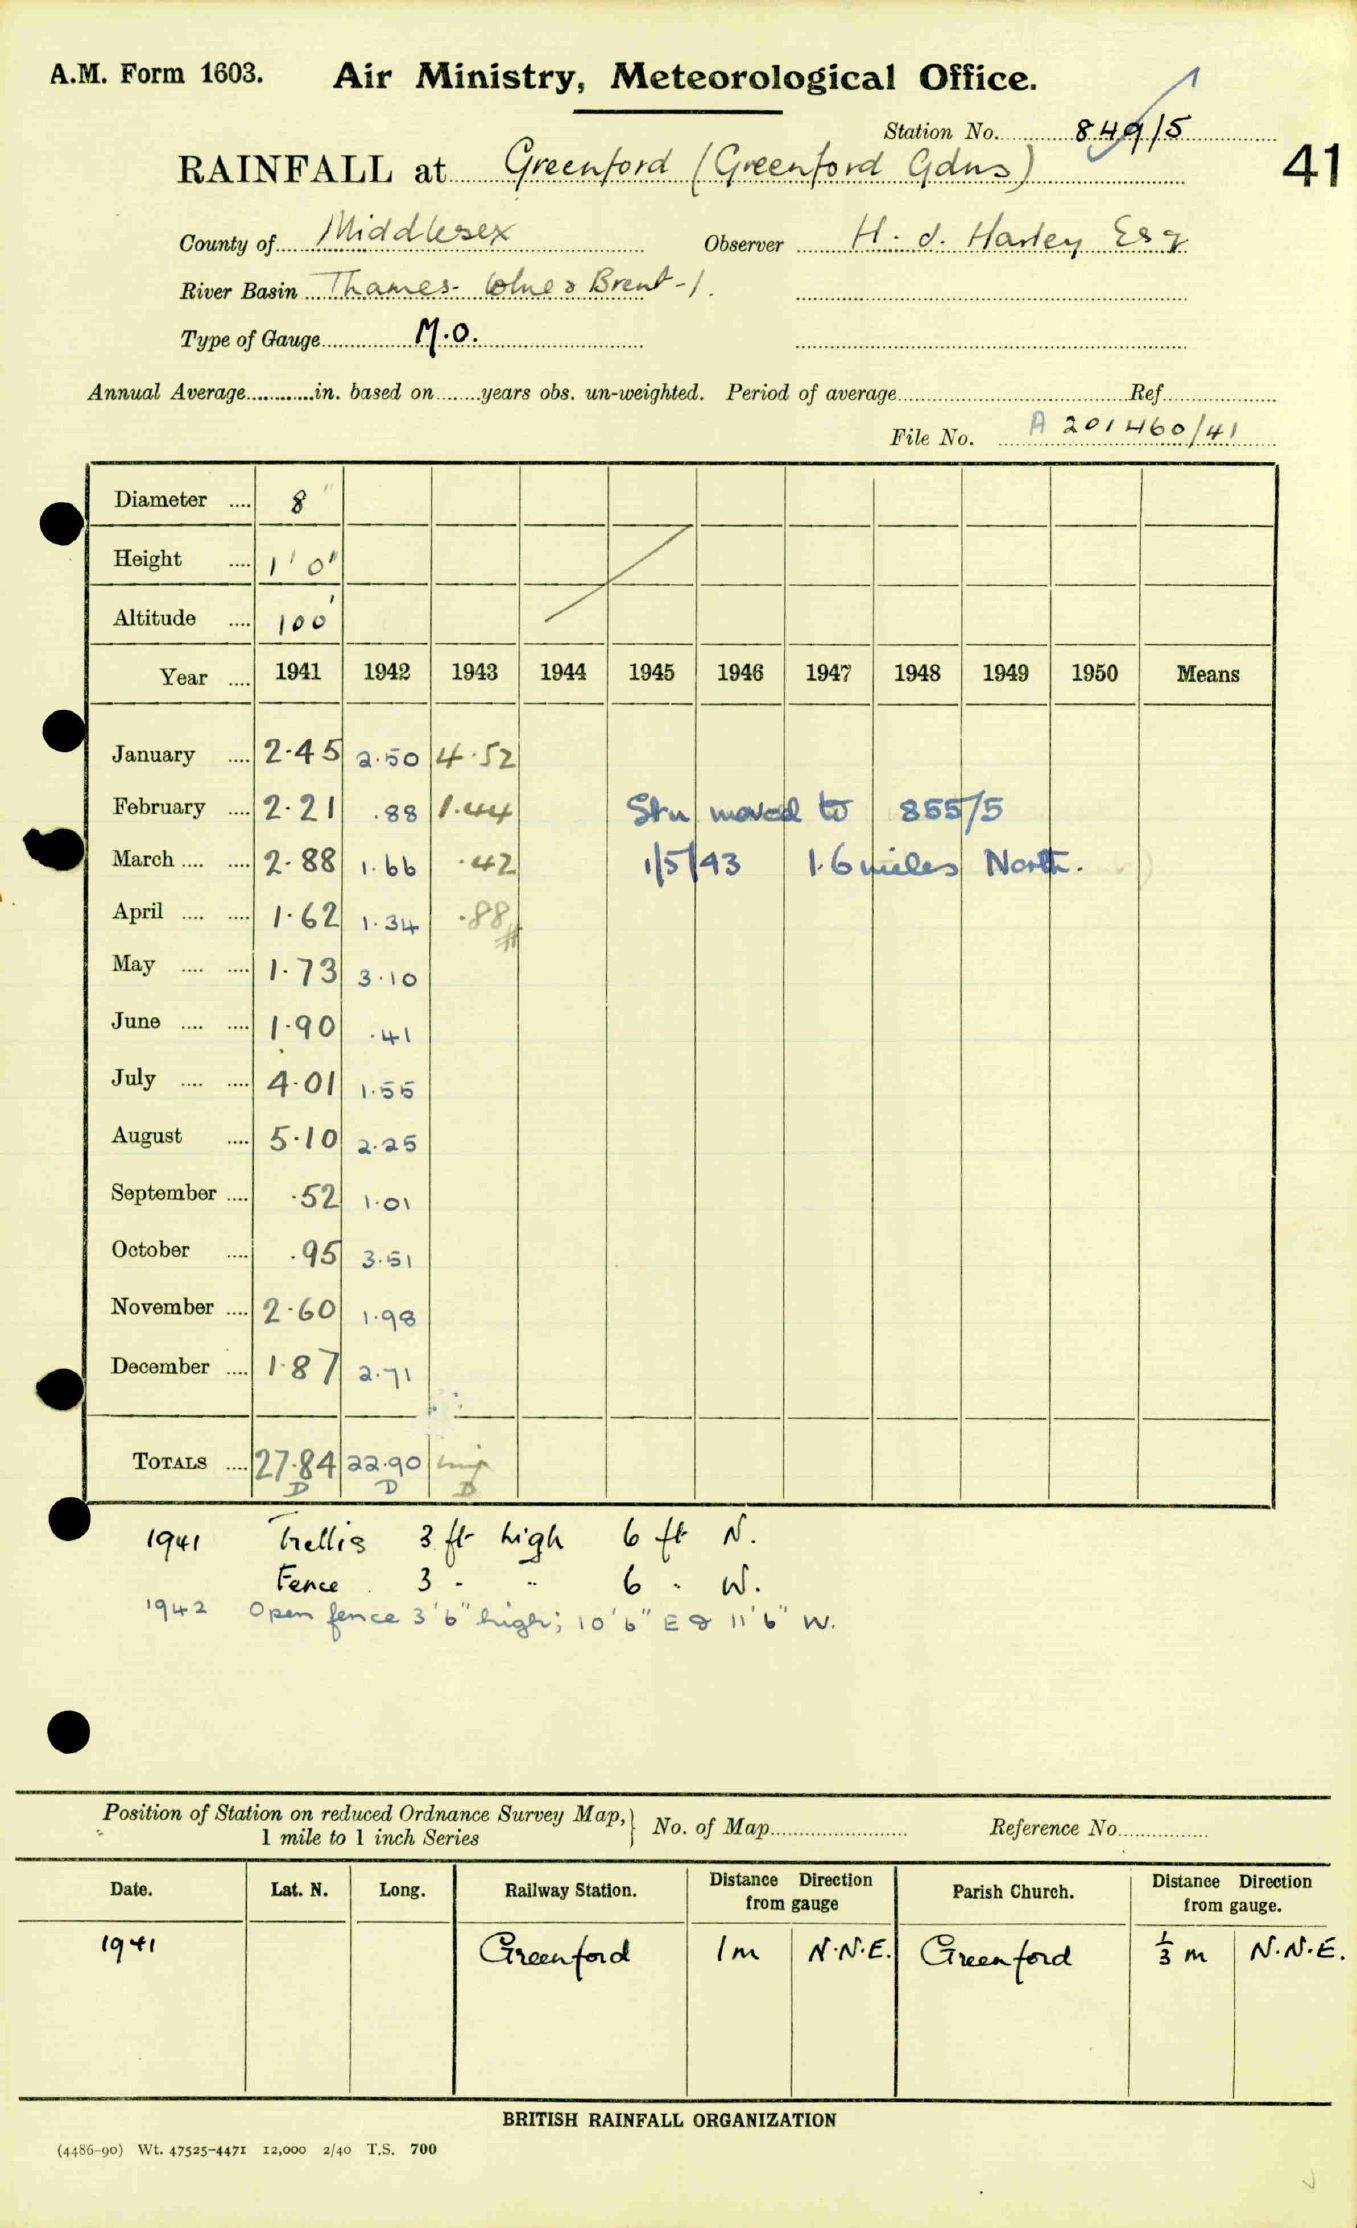 A.M. Form 1603. Air Ministry, Meteorological Office.
Station No. 849/5
41
RAINFALL at Greenford (Greenford Gdns)
County of Middlesex Observer H. J. Harley Esq
River Basin Thames - Colne & Brent - 1.
Type of Gauge M.O.
Annual Average in. based on years obs. un-weighted. Period of average Ref
File No. A 201460/41
Diameter .... 8"
Height .... 1' 0"
Altitude .... 100'
Year .... 1941 1942 1943 1944 1945 1946 1947 1948 1949 1950 Means
January .... 2.45 2.50 4.52
February .... 2.21 .88 1.44 Stn moved to 855/5
March .... .... 2.88 1.66 .42 1/5/43 1.6 miles North.
April .... .... 1.62 1.34 .88
May .... .... 1.73 3.10
June .... .... 1.90 .41
July .... .... 4.01 1.55
August .... 5.10 2.25
September .... .52 1.01
October .... .95 3.51
November .... 2.60 1.98
December .... 1.87 2.71
TOTALS .... 27.84 22.90
D D D
1941 Trellis 3 ft high 6 ft N.
Fence 3 - " 6 - W.
1942 Open fence 3'6" high; 10'6" E & 11'6" W.
Position of Station on reduced Ordnance Survey Map, } No. of Map Reference No
1 mile to 1 inch Series
Date. Lat. N. Long. Railway Station. Distance from gauge Direction Parish Church. Distance from gauge. Direction
1941 Greenford 1 m N.N.E. Greenford 1/3 m N.N.E.
BRITISH RAINFALL ORGANIZATION
(4486-90) Wt. 47525-4471 12,000 2/40 T.S. 700